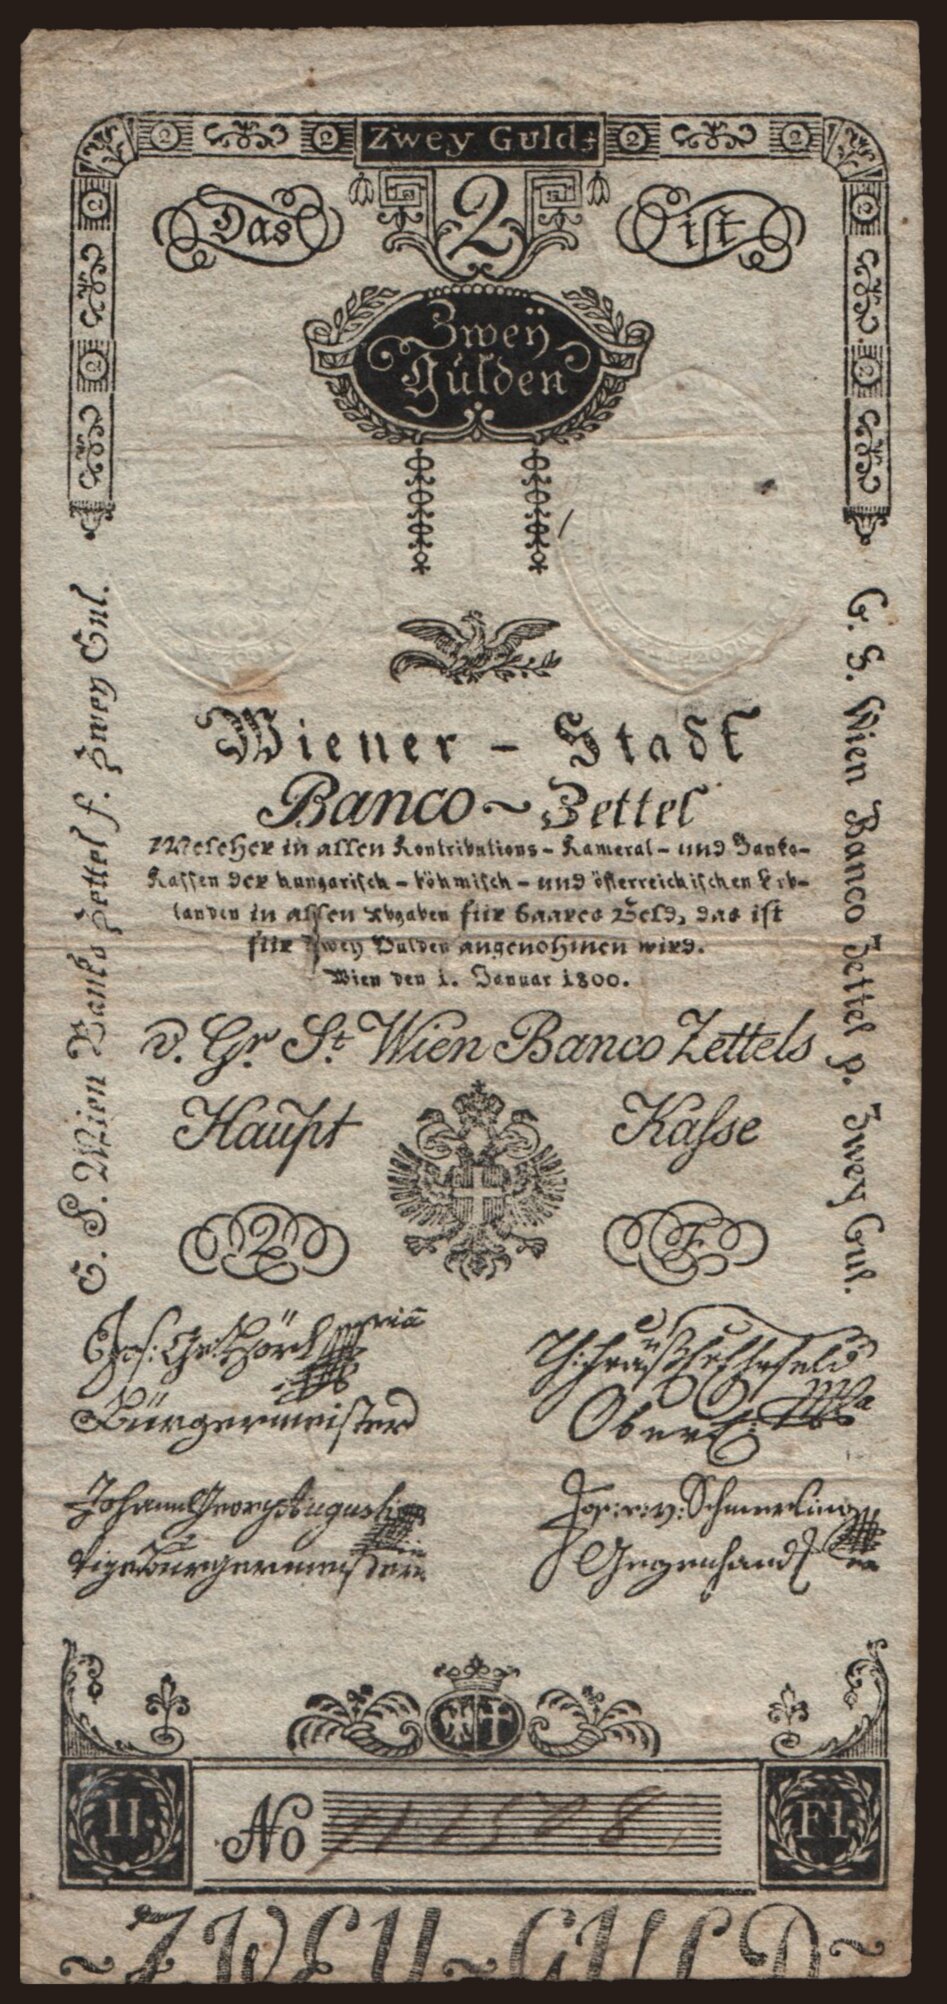 Zwey Guld:
2 2 2 2
Das 2 ist
Zweÿ
Gulden
Wiener - Stadt
Banco ~ Zettel
Welcher in allen Kontributions - Kameral - und Banko-
Kassen der hungarisch - böhmisch - und österreichischen Erb-
landen in allen Abgaben für baares Geld, das ist
für Zwey Gulden angenohmen wird.
Wien den 1. Januar 1800.
v. Gr. St. Wien Banco Zettels
Haupt Kasse
2 F
G. S. Wien Banko Zettel f. Zwey Gul.
G. S. Wien Banco Zettel p. Zwey Gul.
Bürgermeister
Johann Georg Augusti
Vizebürgermeister
Jos: v: Schmerling
Gegenhandl
II. Fl.
No
~ZWEY~GULD~